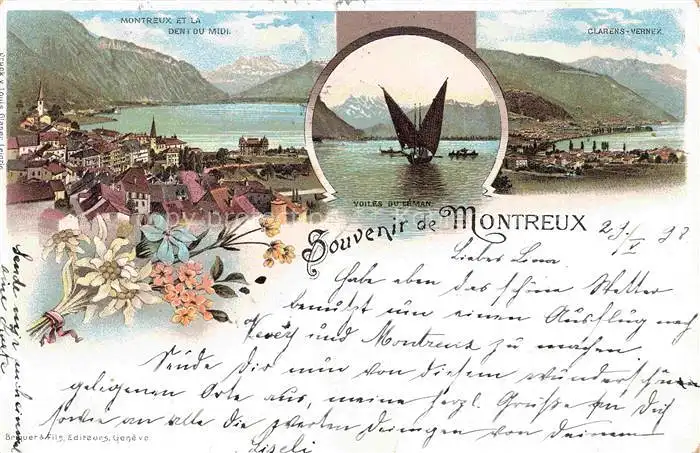 MONTREUX ET LA
DENT DU MIDI.
CLARENS-VERNEX
VOILES DU LÉMAN.
Souvenir de MONTREUX
Liebes
Habe eben das schöne Wetter
benutzt um einen Ausflug nach
Vevey und Montreux zu machen
Sende Dir nun von diesem wunderschön
gelegenen Orte aus, meine herzl. Grüße an Dich
sowie an alle die von Deinem
Liseli
Sende mir auch einmal
eine Karte
Editeurs, Genève